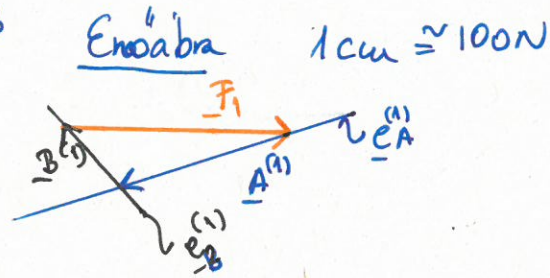 Erőábra 1 cm ≅ 100N
F₁
e_A^(1)
B^(1)
A^(1)
e_B^(1)